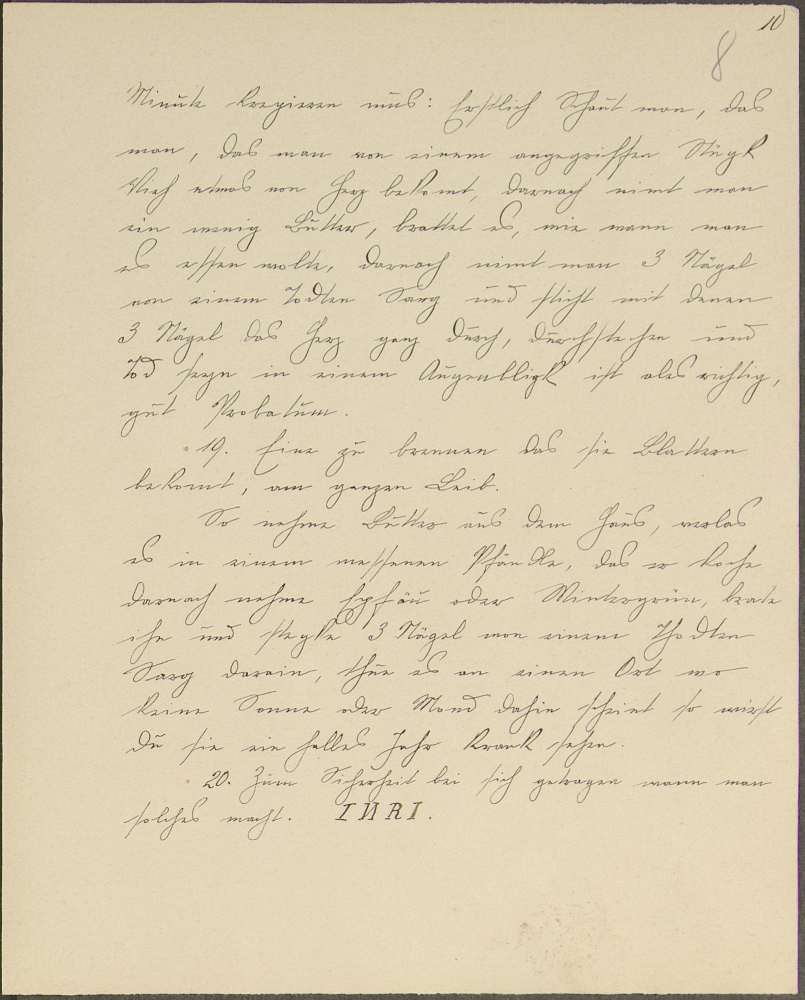 10
8
Minute krepieren muß: Erstlich Schaut man, das
man, das man von einem angegriffen Stügk
Vieh etwas von Herz bekomt, darnach nimt man
ein wenig Butter, brattet es, wie wann man
es essen wolte, darnach nimt man 3 Nägel
von einem Todten Sarg und sticht mit denen
3 Nägel das Herz ganz durch, durchstechen und
Tod seyn in einem Augenbligk ist ales richtig,
gut Probatum.
19. Eine zu brennen das sie Blattern
bekomt, am ganzen Leib.
So nehme Butter aus dem Haus, verlas
es in einem messenen Pfändle, das er koche
darnach nehme Epfäu oder Wintergrün, brate
ihn und stegke 3 Nägel von einem Thodten
Sarg darein, thue es an einen Ort wo
keine Sonne oder Mond dahin scheint so wirst
du sie ein halbes Jahr Krank sehen.
20. Zum Sicherheit bei sich getragen wann man
solches macht. INRI.